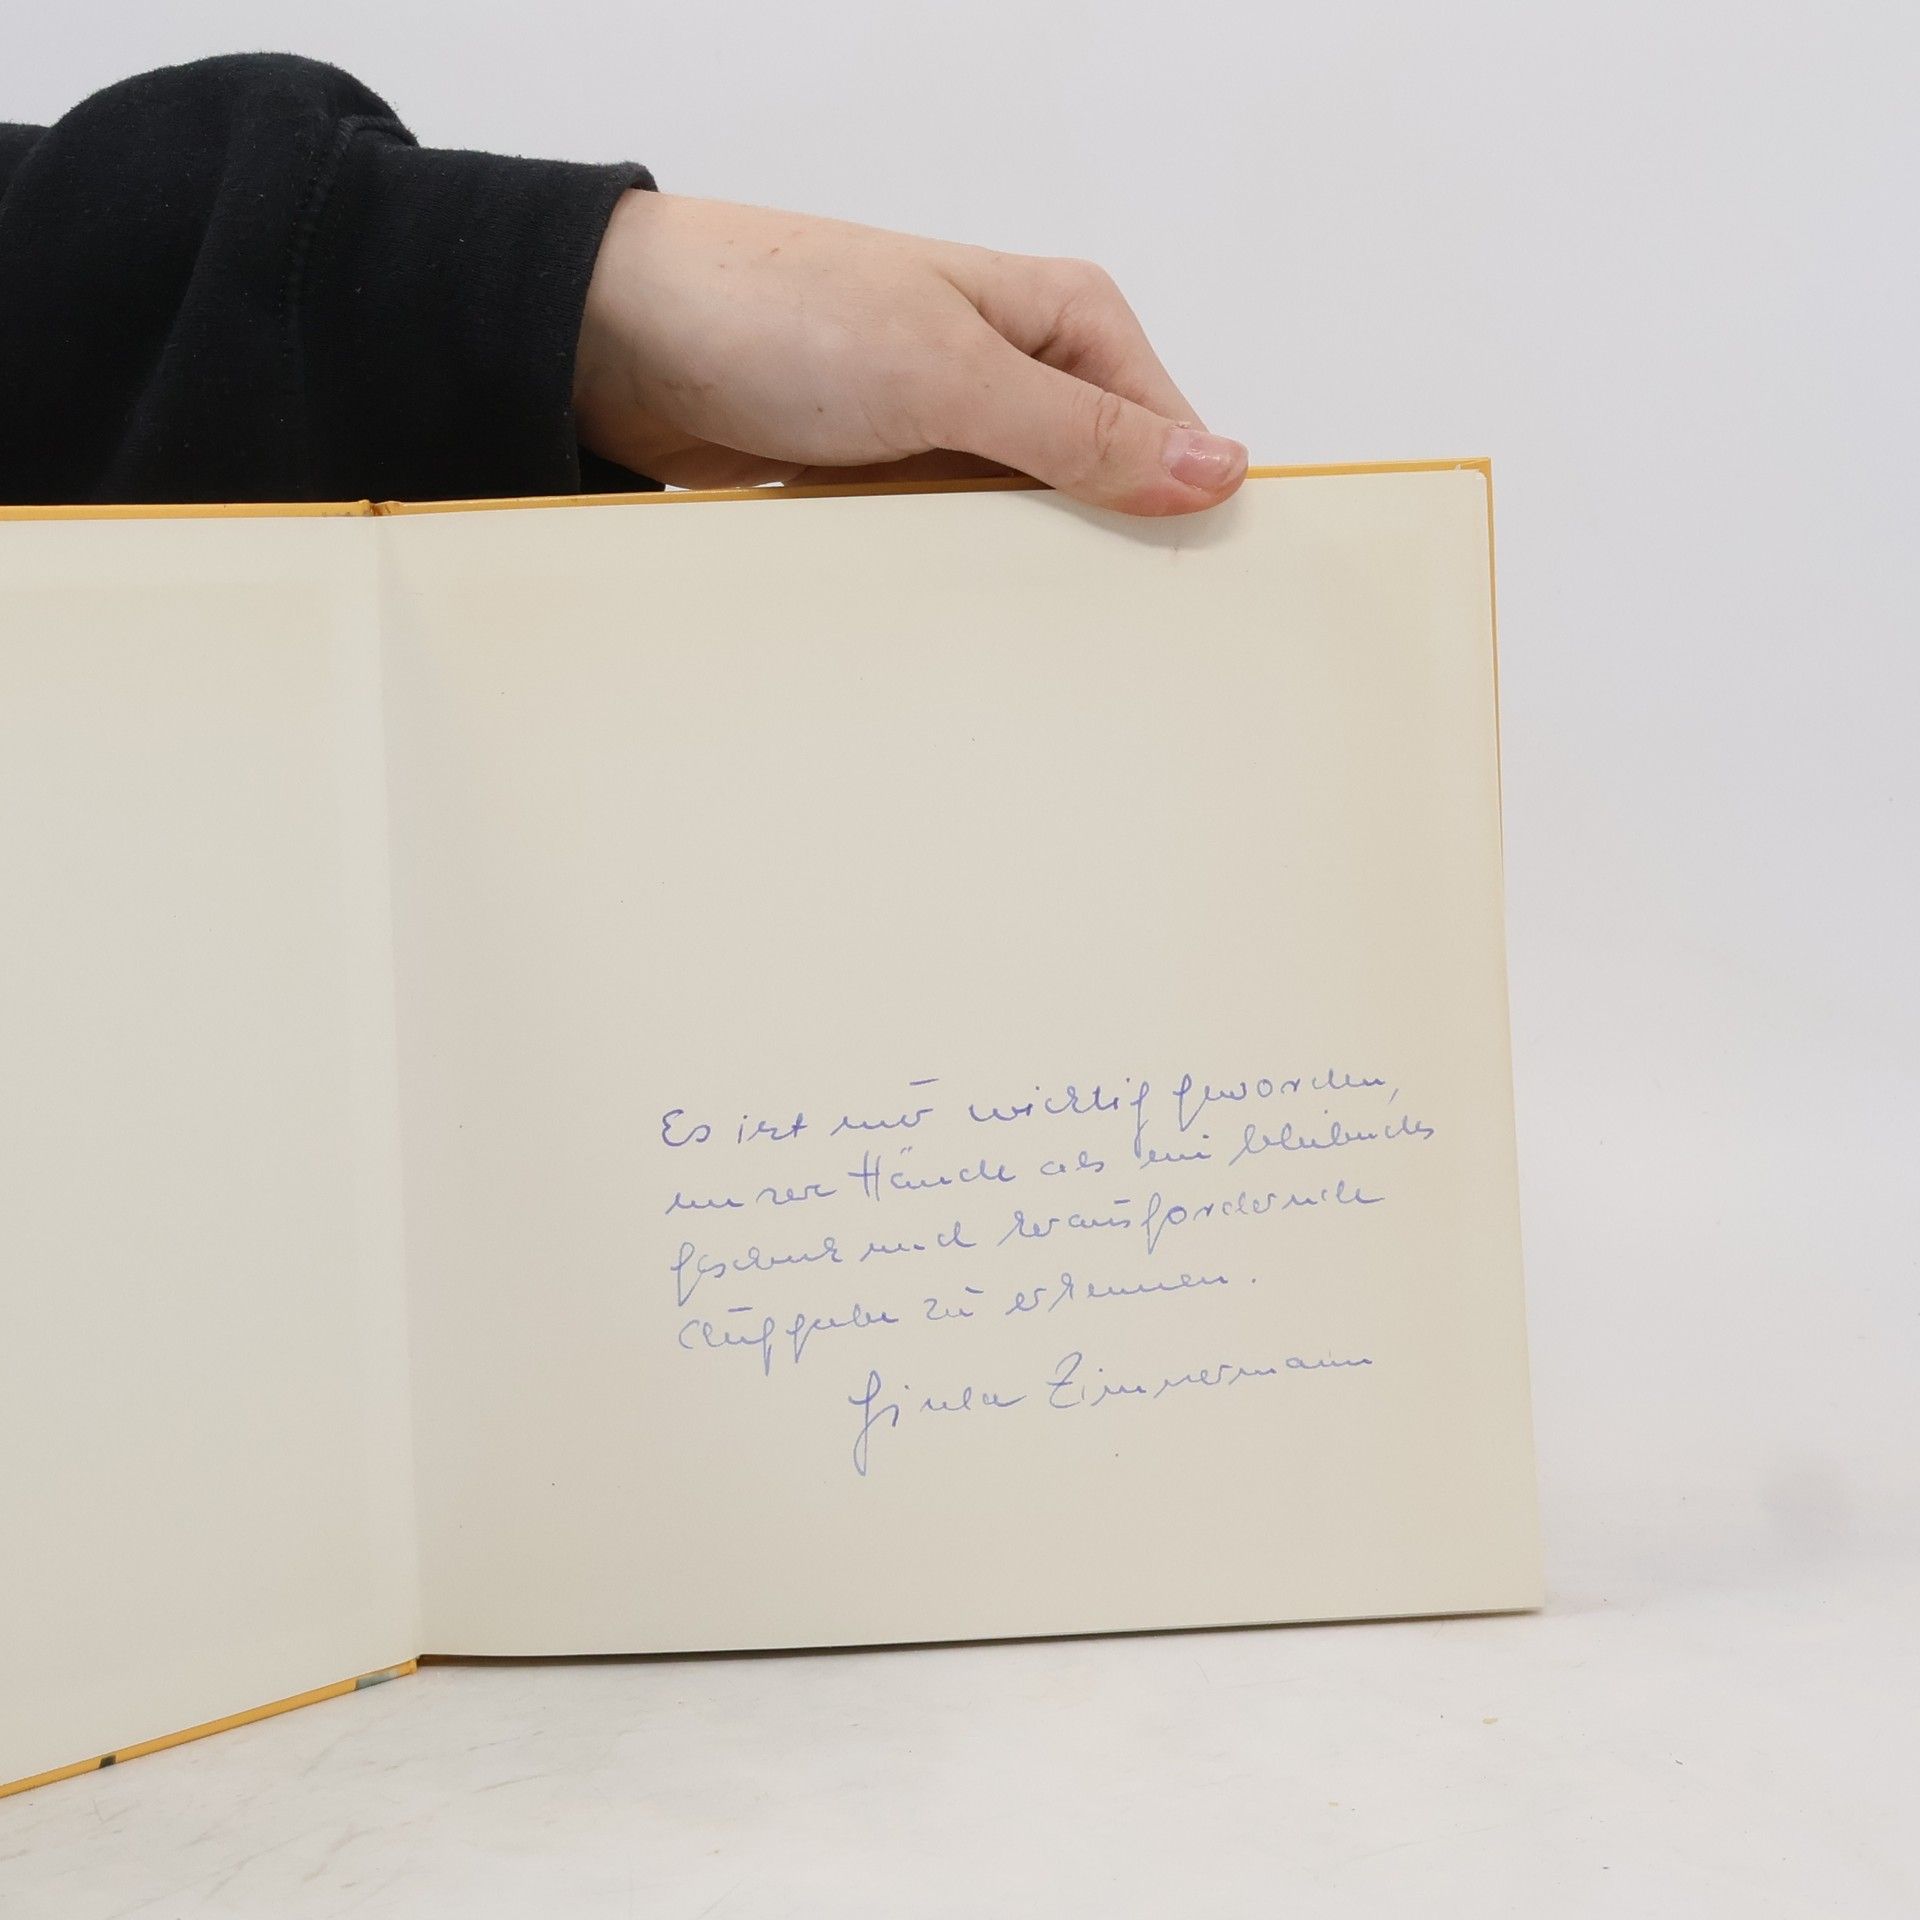 Es ist mir wichtig geworden,
unsere Hände als ein bleibendes
Geschenk und herausfordernde
Aufgabe zu erkennen.
Gisela Zimmermann